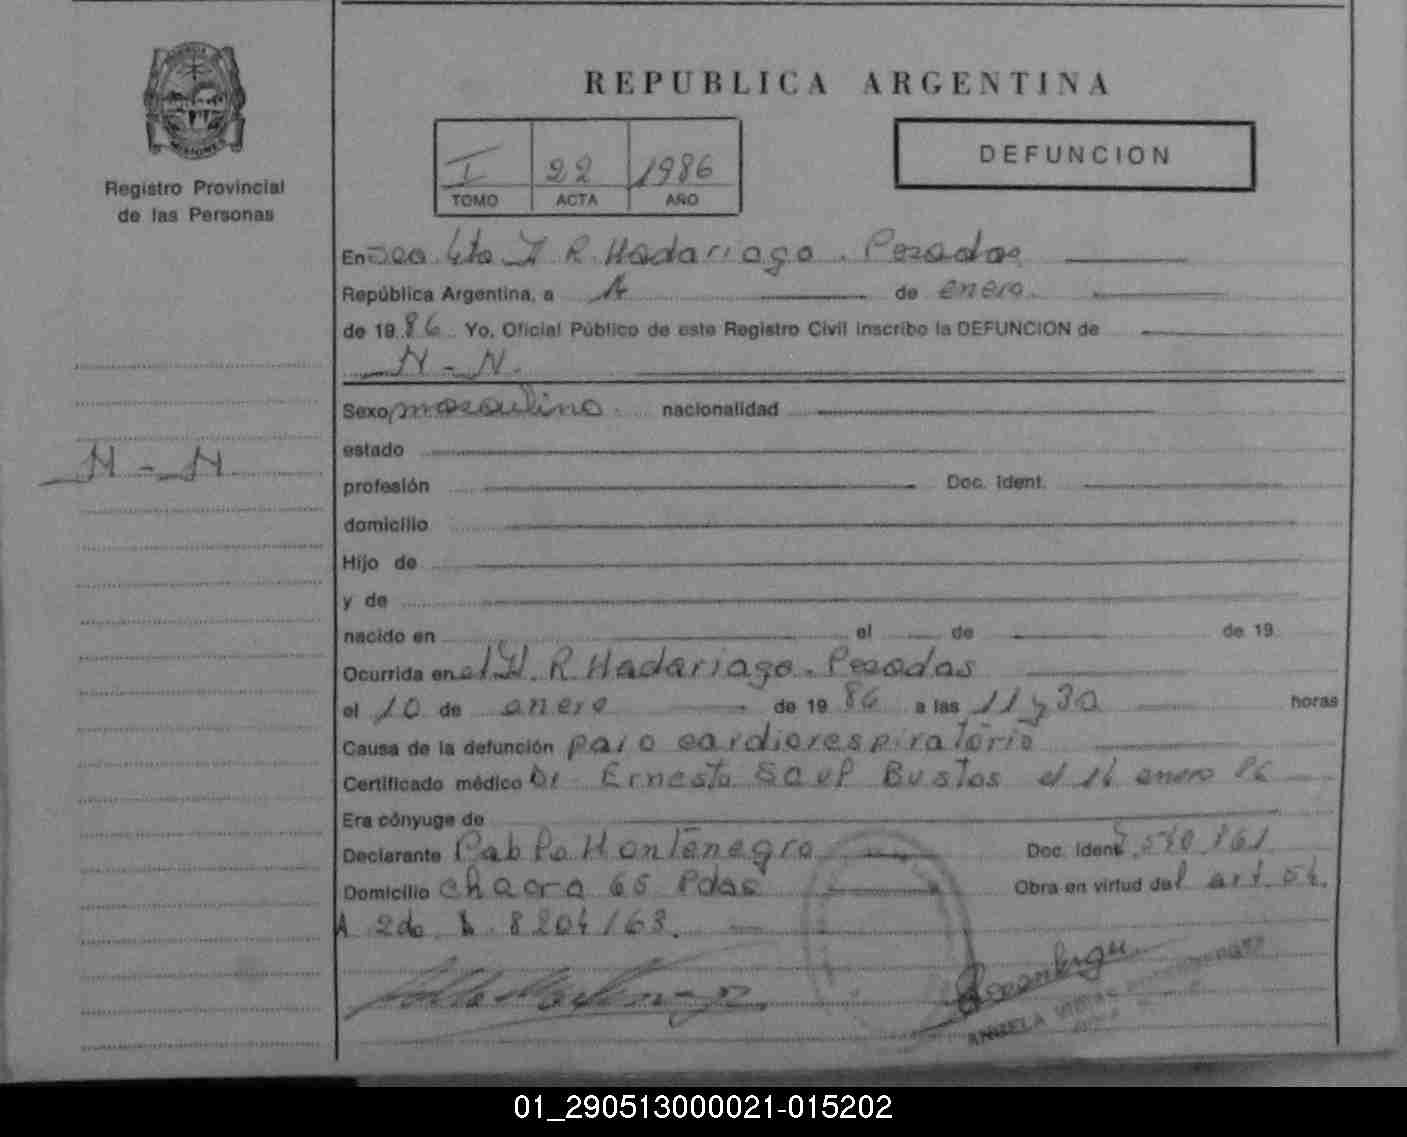 REPUBLICA ARGENTINA
I 22 1986
TOMO ACTA AÑO
DEFUNCION
MISIONES
Registro Provincial
de las Personas
En Sec 4ta H R. Madariaga. Posadas
República Argentina, a de enero
de 1986 Yo, Oficial Público de este Registro Civil inscribo la DEFUNCION de
N - N.
Sexo masculino nacionalidad
estado
N - N
profesión Doc. Ident.
domicilio
Hijo de
y de
nacido en el de de 19
Ocurrida en el H. R. Madariaga. Posadas
el 10 de enero de 1986 a las 11 y 30 horas
Causa de la defunción paro cardiorespiratorio
Certificado médico Dr Ernesto Saul Bustos el enero 86
Era cónyuge de
Declarante Pablo Montenegro Doc. Ident 7.540.161
Domicilio Chacra 65 Pdas Obra en virtud del art. 54.
8204/63.
ANGELA
01_290513000021-015202